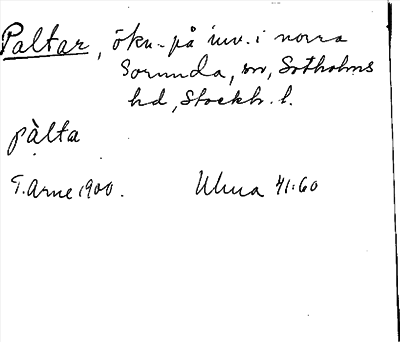 Paltar, ökn. på inv. i norra
Sorunda, sn, Sotholms
hd, Stockh. l.
pàlta
T. Arne 1900. Ulma 71:60